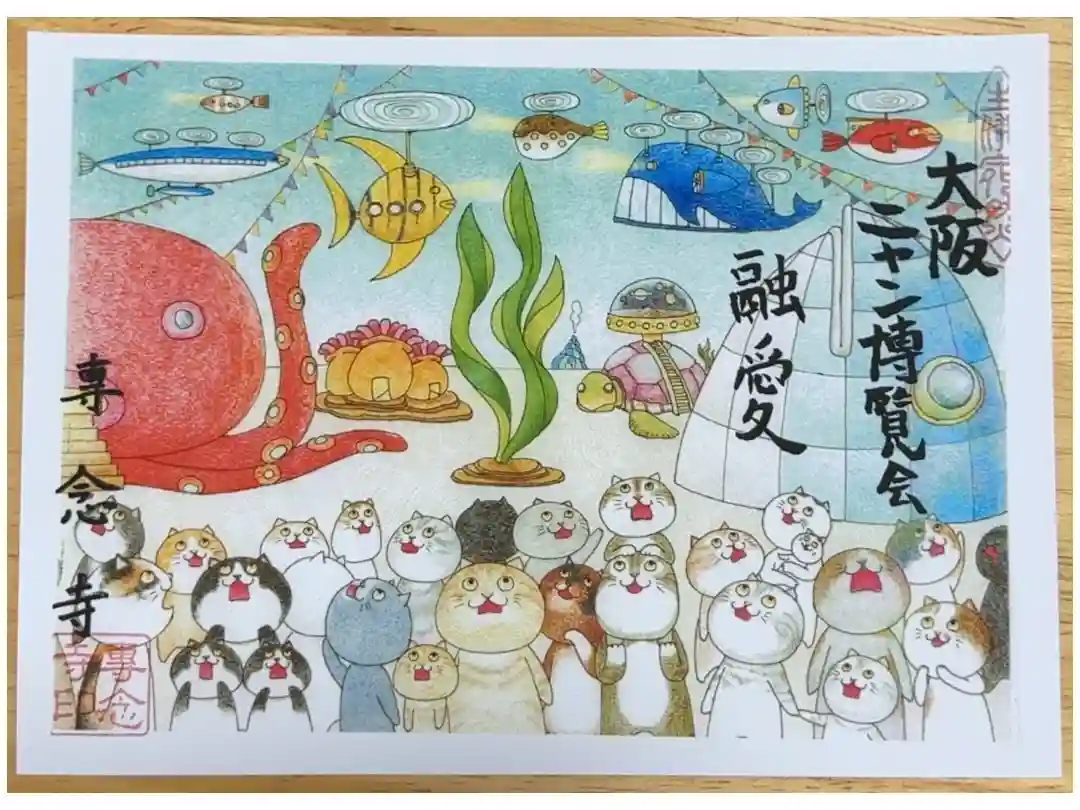 大阪
ニャン博覧会
融愛
専念寺
専念
寺印